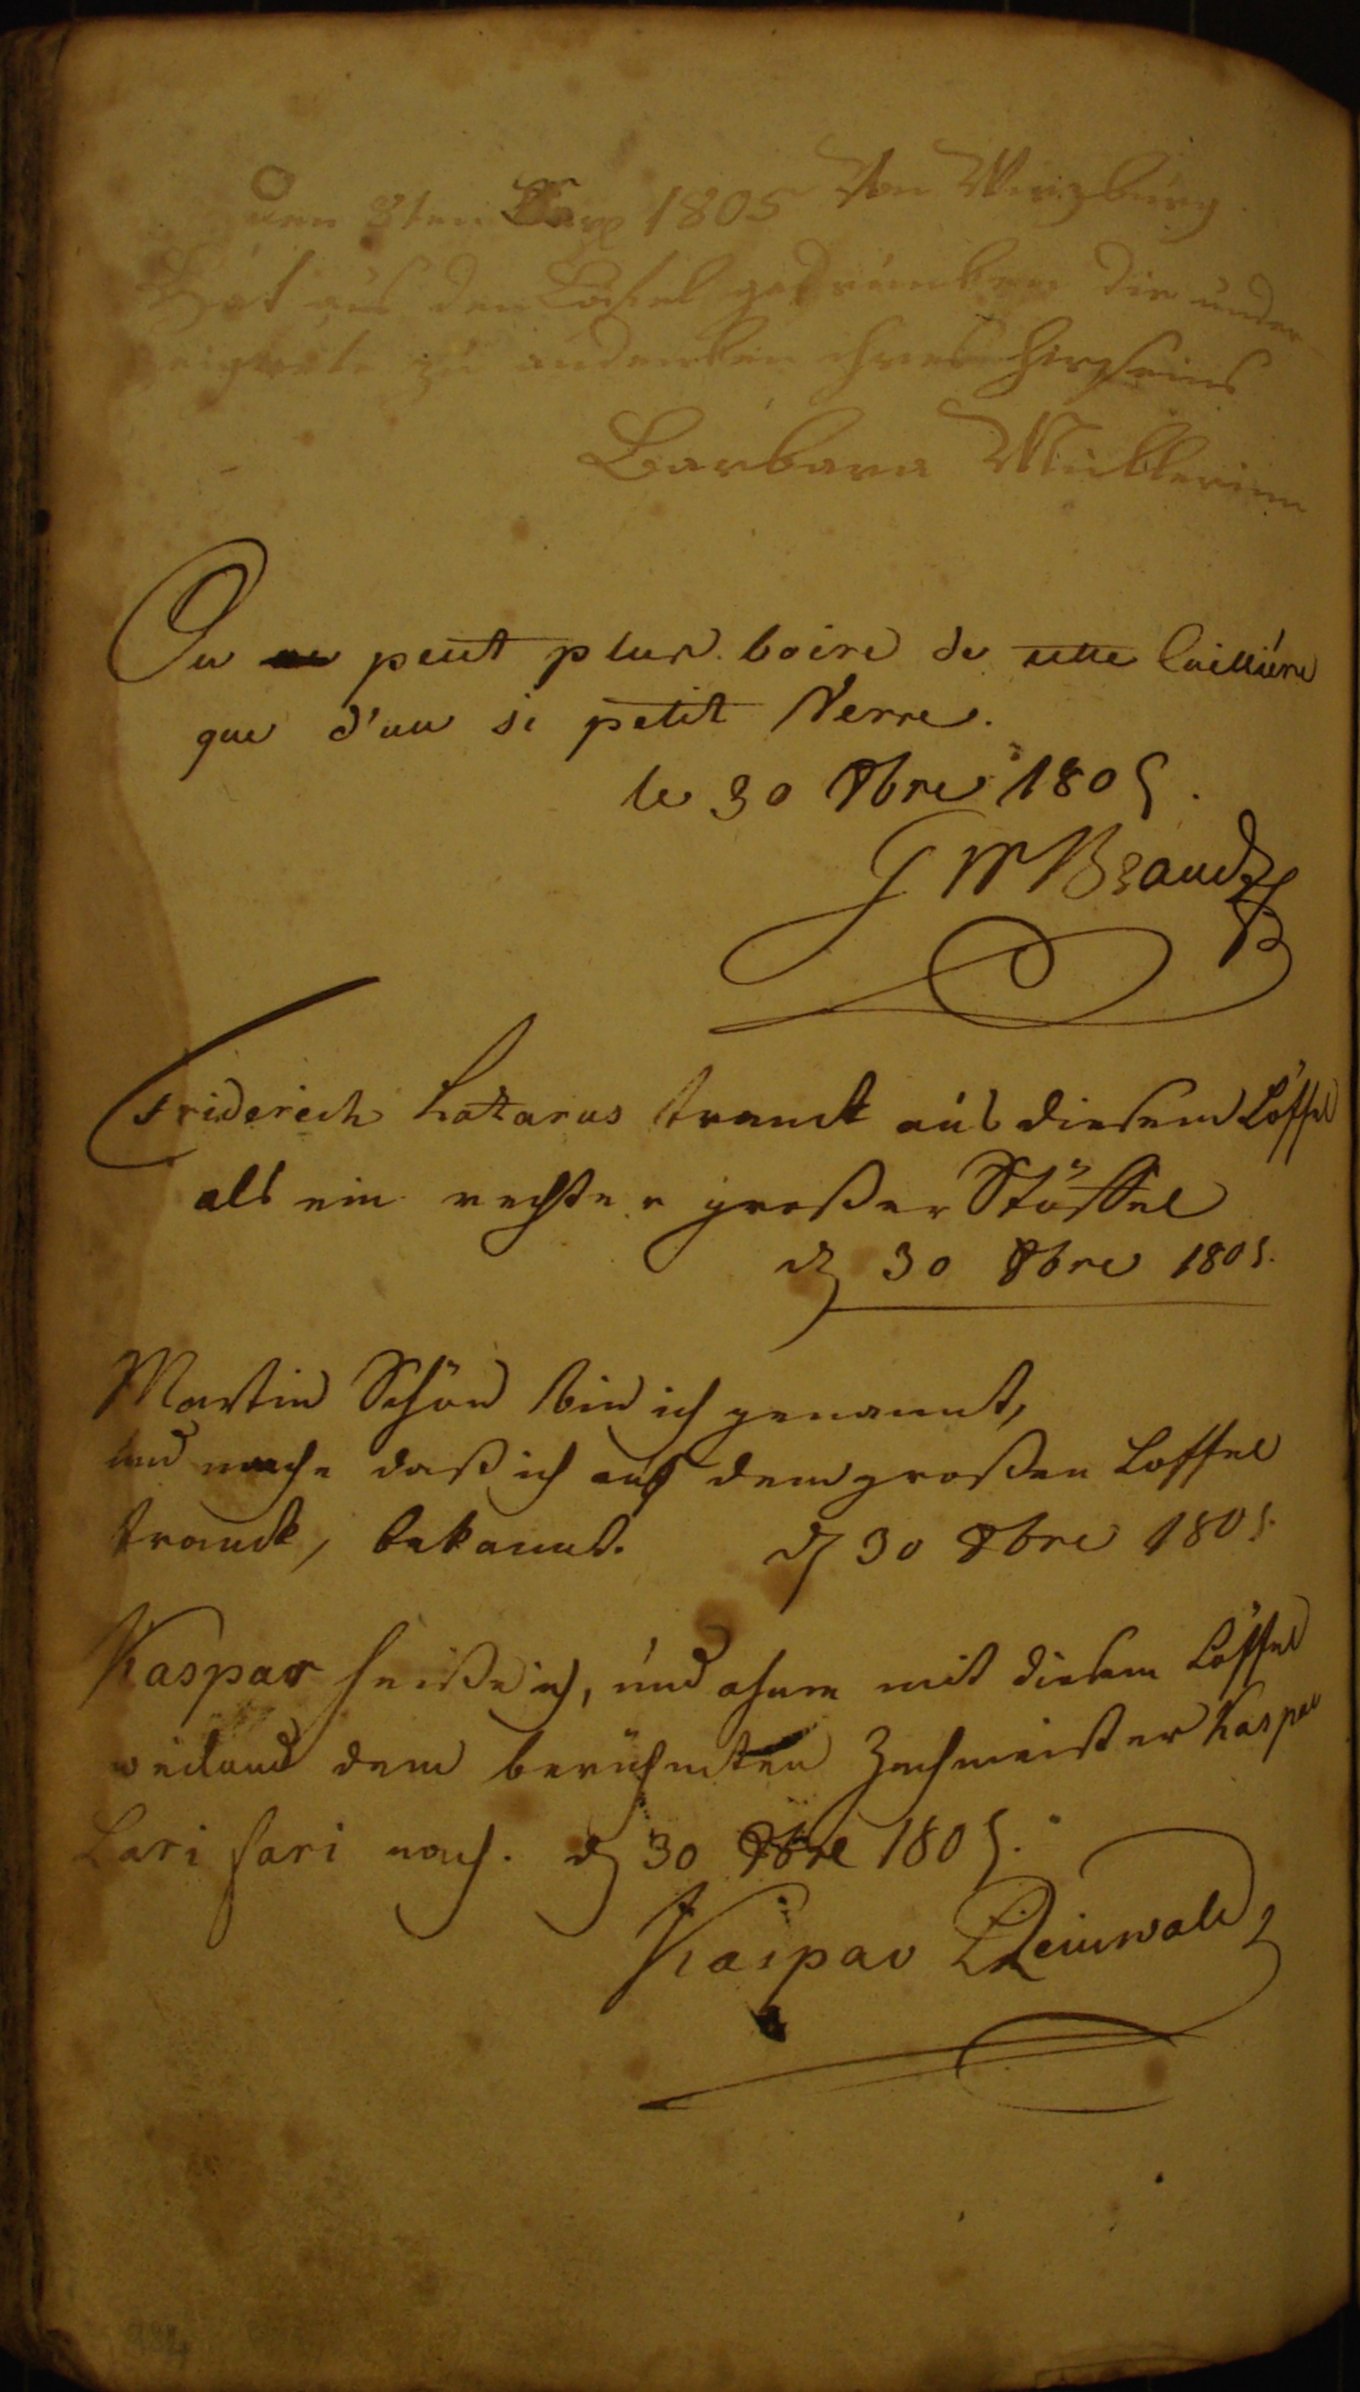 den 3ten 1805 Von Wirzburg
Hat aus den Löfel gedruncken die under
zu andencken ihres hirseins
Barbara Müllerinn
On ne peut plus boire de cette Cuilliére
que d'un si petit Verre.
le 30 8bre 1805.
G W Brandt
Friderich Lazarus tranck aus diesem Löffel
als ein rechter großer Stöffel
d 30 8bre 1805.
Martin Schön bin ich genannt,
und mache daß ich aus dem großen Loffel
tranck, bekannt. d 30 8bre 1805.
Kaspar heiße ich, und ahme mit diesem Löffel
weiland dem berühmten Zechmeister Kaspar
Lari fari nach. d 30 8bre 1805.
Kaspar Reinwald